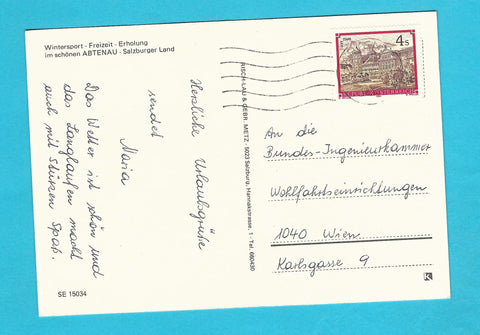 Wintersport - Freizeit - Erholung
im schönen ABTENAU - Salzburger Land
Herzliche Urlaubsgrüße
sendet
Maria
Das Wetter ist schön und
das Langlaufen macht
auch mit Stürzen Spaß.
SE 15034
RISCH-LAU & GEBR. METZ · 5023 Salzburg, Hannakstrasse, 1 · Tel. 660430
4 S
An die
Bundes-Ingenieurkammer
Wohlfahrtseinrichtungen
1040 Wien
Karlsgasse 9
K